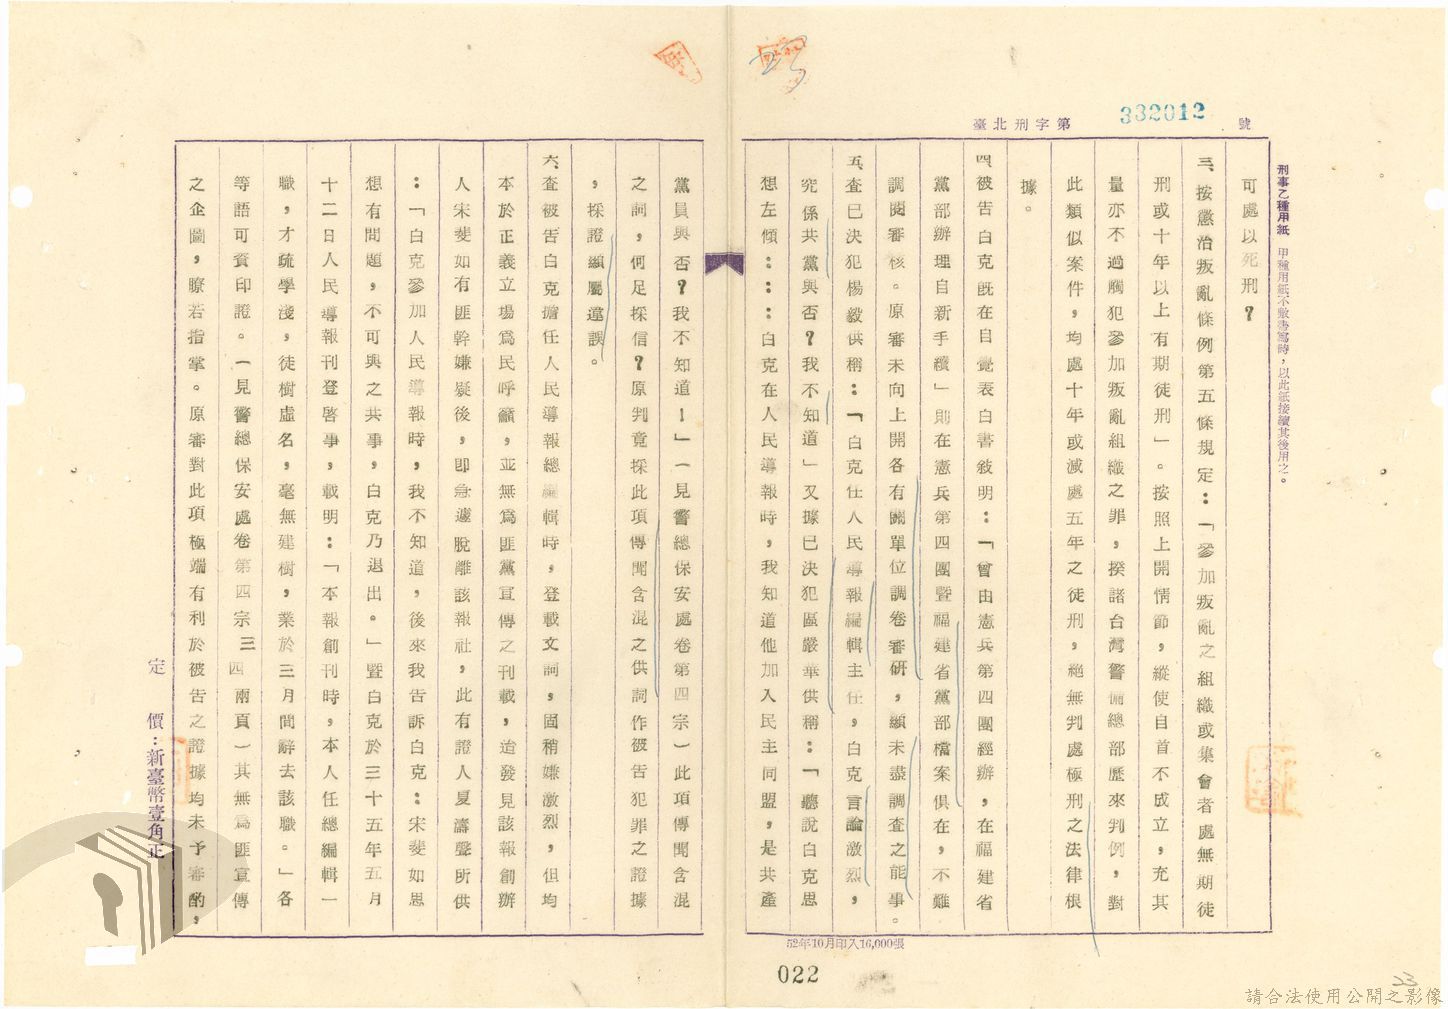 臺北刑字第 332012 號
刑事乙種用紙 甲種用紙不敷書寫時,以此紙接續其後用之。
可處以死刑?
三、按懲治叛亂條例第五條規定:「參加叛亂之組織或集會者處無期徒
刑或十年以上有期徒刑」。按照上開情節,縱使自首不成立,充其
量亦不過觸犯參加叛亂組織之罪,揆諸台灣警備總部歷來判例,對
此類似案件,均處十年或減處五年之徒刑,絕無判處極刑之法律根
據。
四、被告白克旣在自覺表白書敘明:「曾由憲兵第四團經辦,在福建省
黨部辦理自新手續」則在憲兵第四團暨福建省黨部檔案俱在,不難
調閱審核。原審未向上開各有關單位調卷審研,顯未盡調查之能事。
五、查已決犯楊毅供稱:「白克任人民導報編輯主任,白克言論激烈,
究係共黨與否?我不知道」又據已決犯區嚴華供稱:「聽說白克思
想左傾:::白克在人民導報時,我知道他加入民主同盟,是共產
黨員與否?我不知道!」(見警總保安處卷第四宗)此項傳聞含混
之詞,何足採信?原判竟採此項傳聞含混之供詞作被告犯罪之證據
,採證顯屬違誤。
六、查被告白克擔任人民導報總編輯時,登載文詞,固稍嫌激烈,但均
本於正義立場為民呼籲,並無為匪黨宣傳之刊載,迨發見該報創辦
人宋斐如有匪幹嫌疑後,即急遽脫離該報社,此有證人夏濤聲所供
:「白克參加人民導報時,我不知道,後來我告訴白克:宋斐如思
想有問題,不可與之共事,白克乃退出。」暨白克於三十五年五月
十二日人民導報刊登啓事,載明:「本報創刊時,本人任總編輯一
職,才疏學淺,徒樹虛名,毫無建樹,業於三月間辭去該職。」各
等語可資印證。(見警總保安處卷第四宗三四兩頁)其無為匪宣傳
之企圖,瞭若指掌。原審對此項極端有利於被告之證據均未予審酌,
定 價:新臺幣壹角正
52年10月印入16,000張
022
23
請合法使用公開之影像